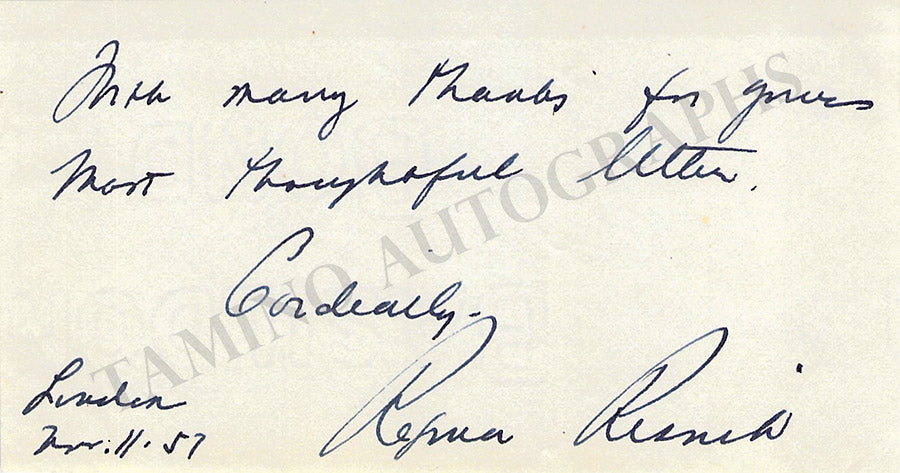 With many thanks for your
most thoughtful letter.
Cordially.
London
Nov. 11. 57
Regina Resnik
TAMINO AUTOGRAPHS